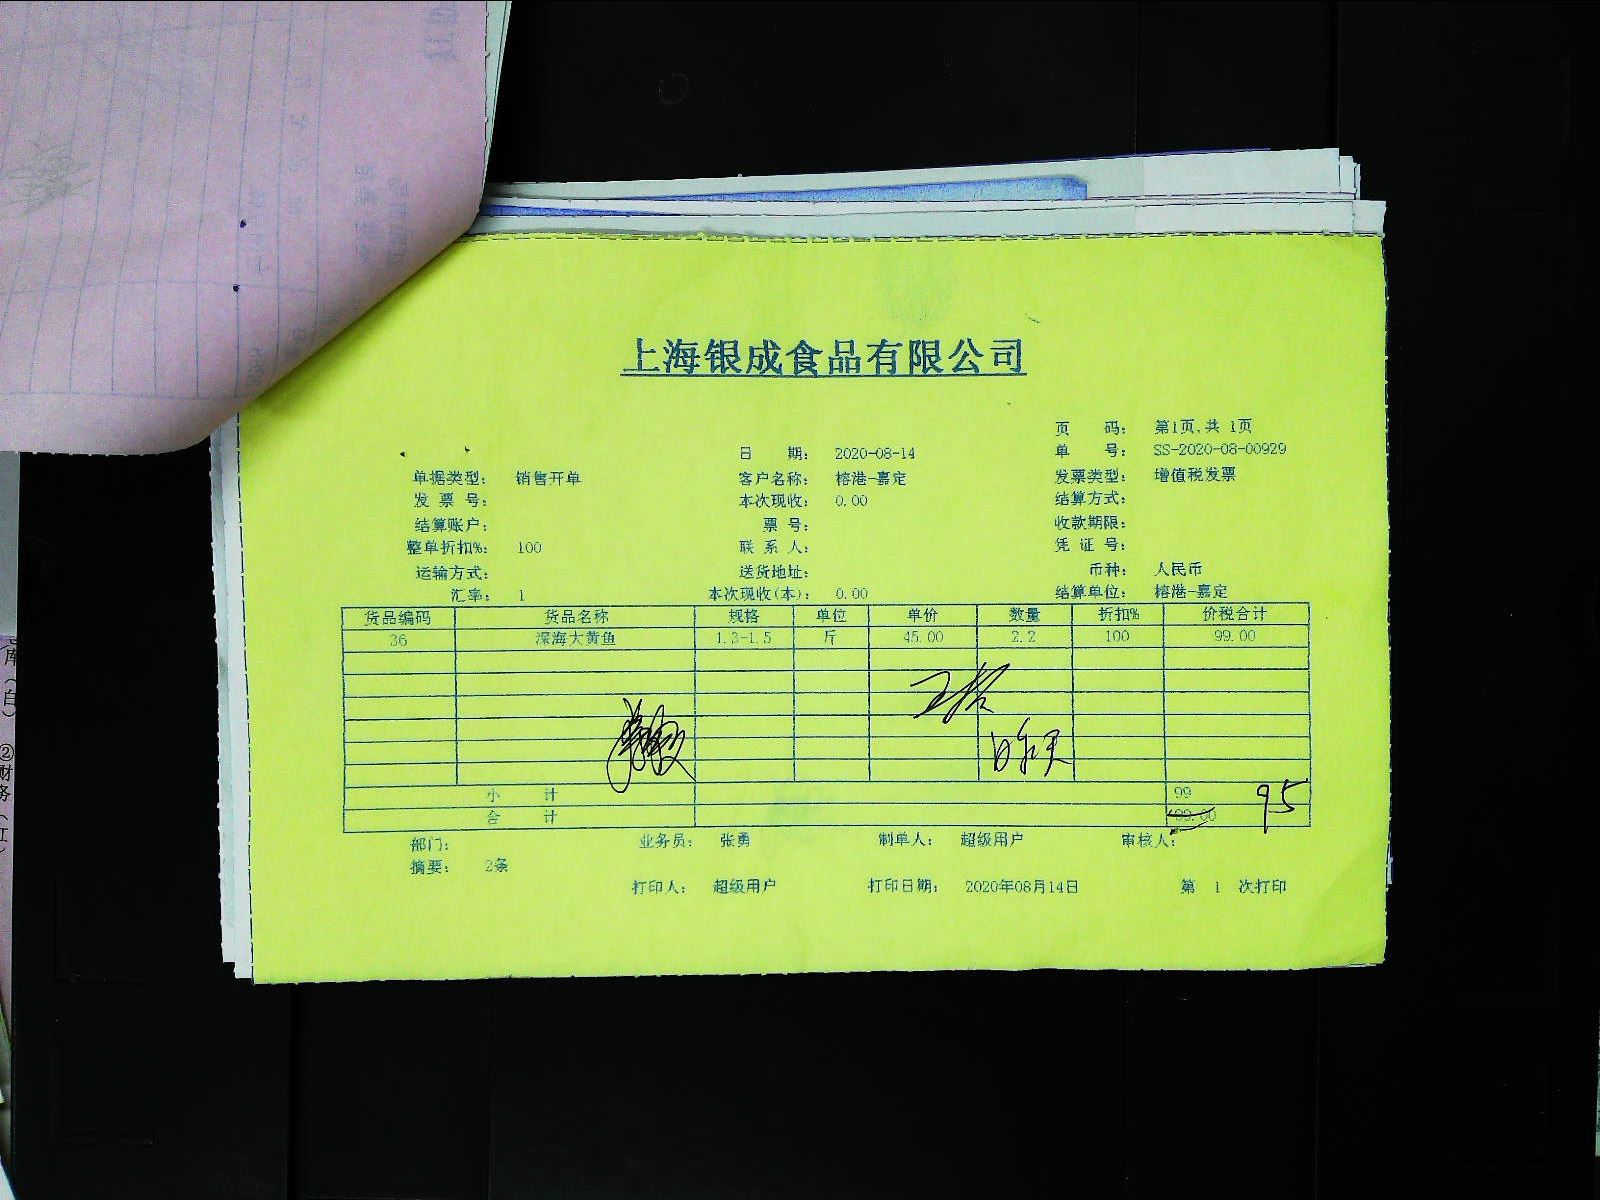 上海银成食品有限公司
页 码: 第1页,共 1页
日 期: 2020-08-14 单 号: SS-2020-08-00929
单据类型: 销售开单 客户名称: 榕港-嘉定 发票类型: 增值税发票
发 票 号: 本次现收: 0.00 结算方式:
结算账户: 票 号: 收款期限:
整单折扣%: 100 联 系 人: 凭 证 号:
运输方式: 送货地址: 币种: 人民币
汇率: 1 本次现收(本): 0.00 结算单位: 榕港-嘉定
货品编码 货品名称 规格 单位 单价 数量 折扣% 价税合计
36 深海大黄鱼 1.3-1.5 斤 45.00 2.2 100 99.00
小 计 99
95
合 计 99.00
部门: 业务员: 张勇 制单人: 超级用户 审核人:
摘要: 2条
打印人: 超级用户 打印日期: 2020年08月14日 第 1 次打印
库(白)
②财务(红)